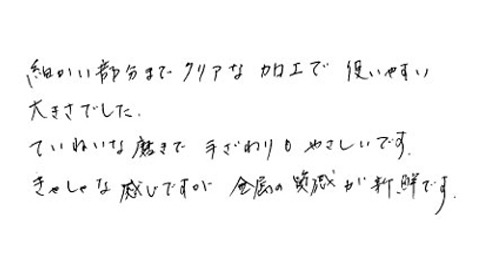 細かい部分までクリアな加工で 使いやすい
大きさでした.
ていねいな磨きで 手ざわりも やさしいです.
きゃしゃな感じですが 金属の質感が新鮮です.